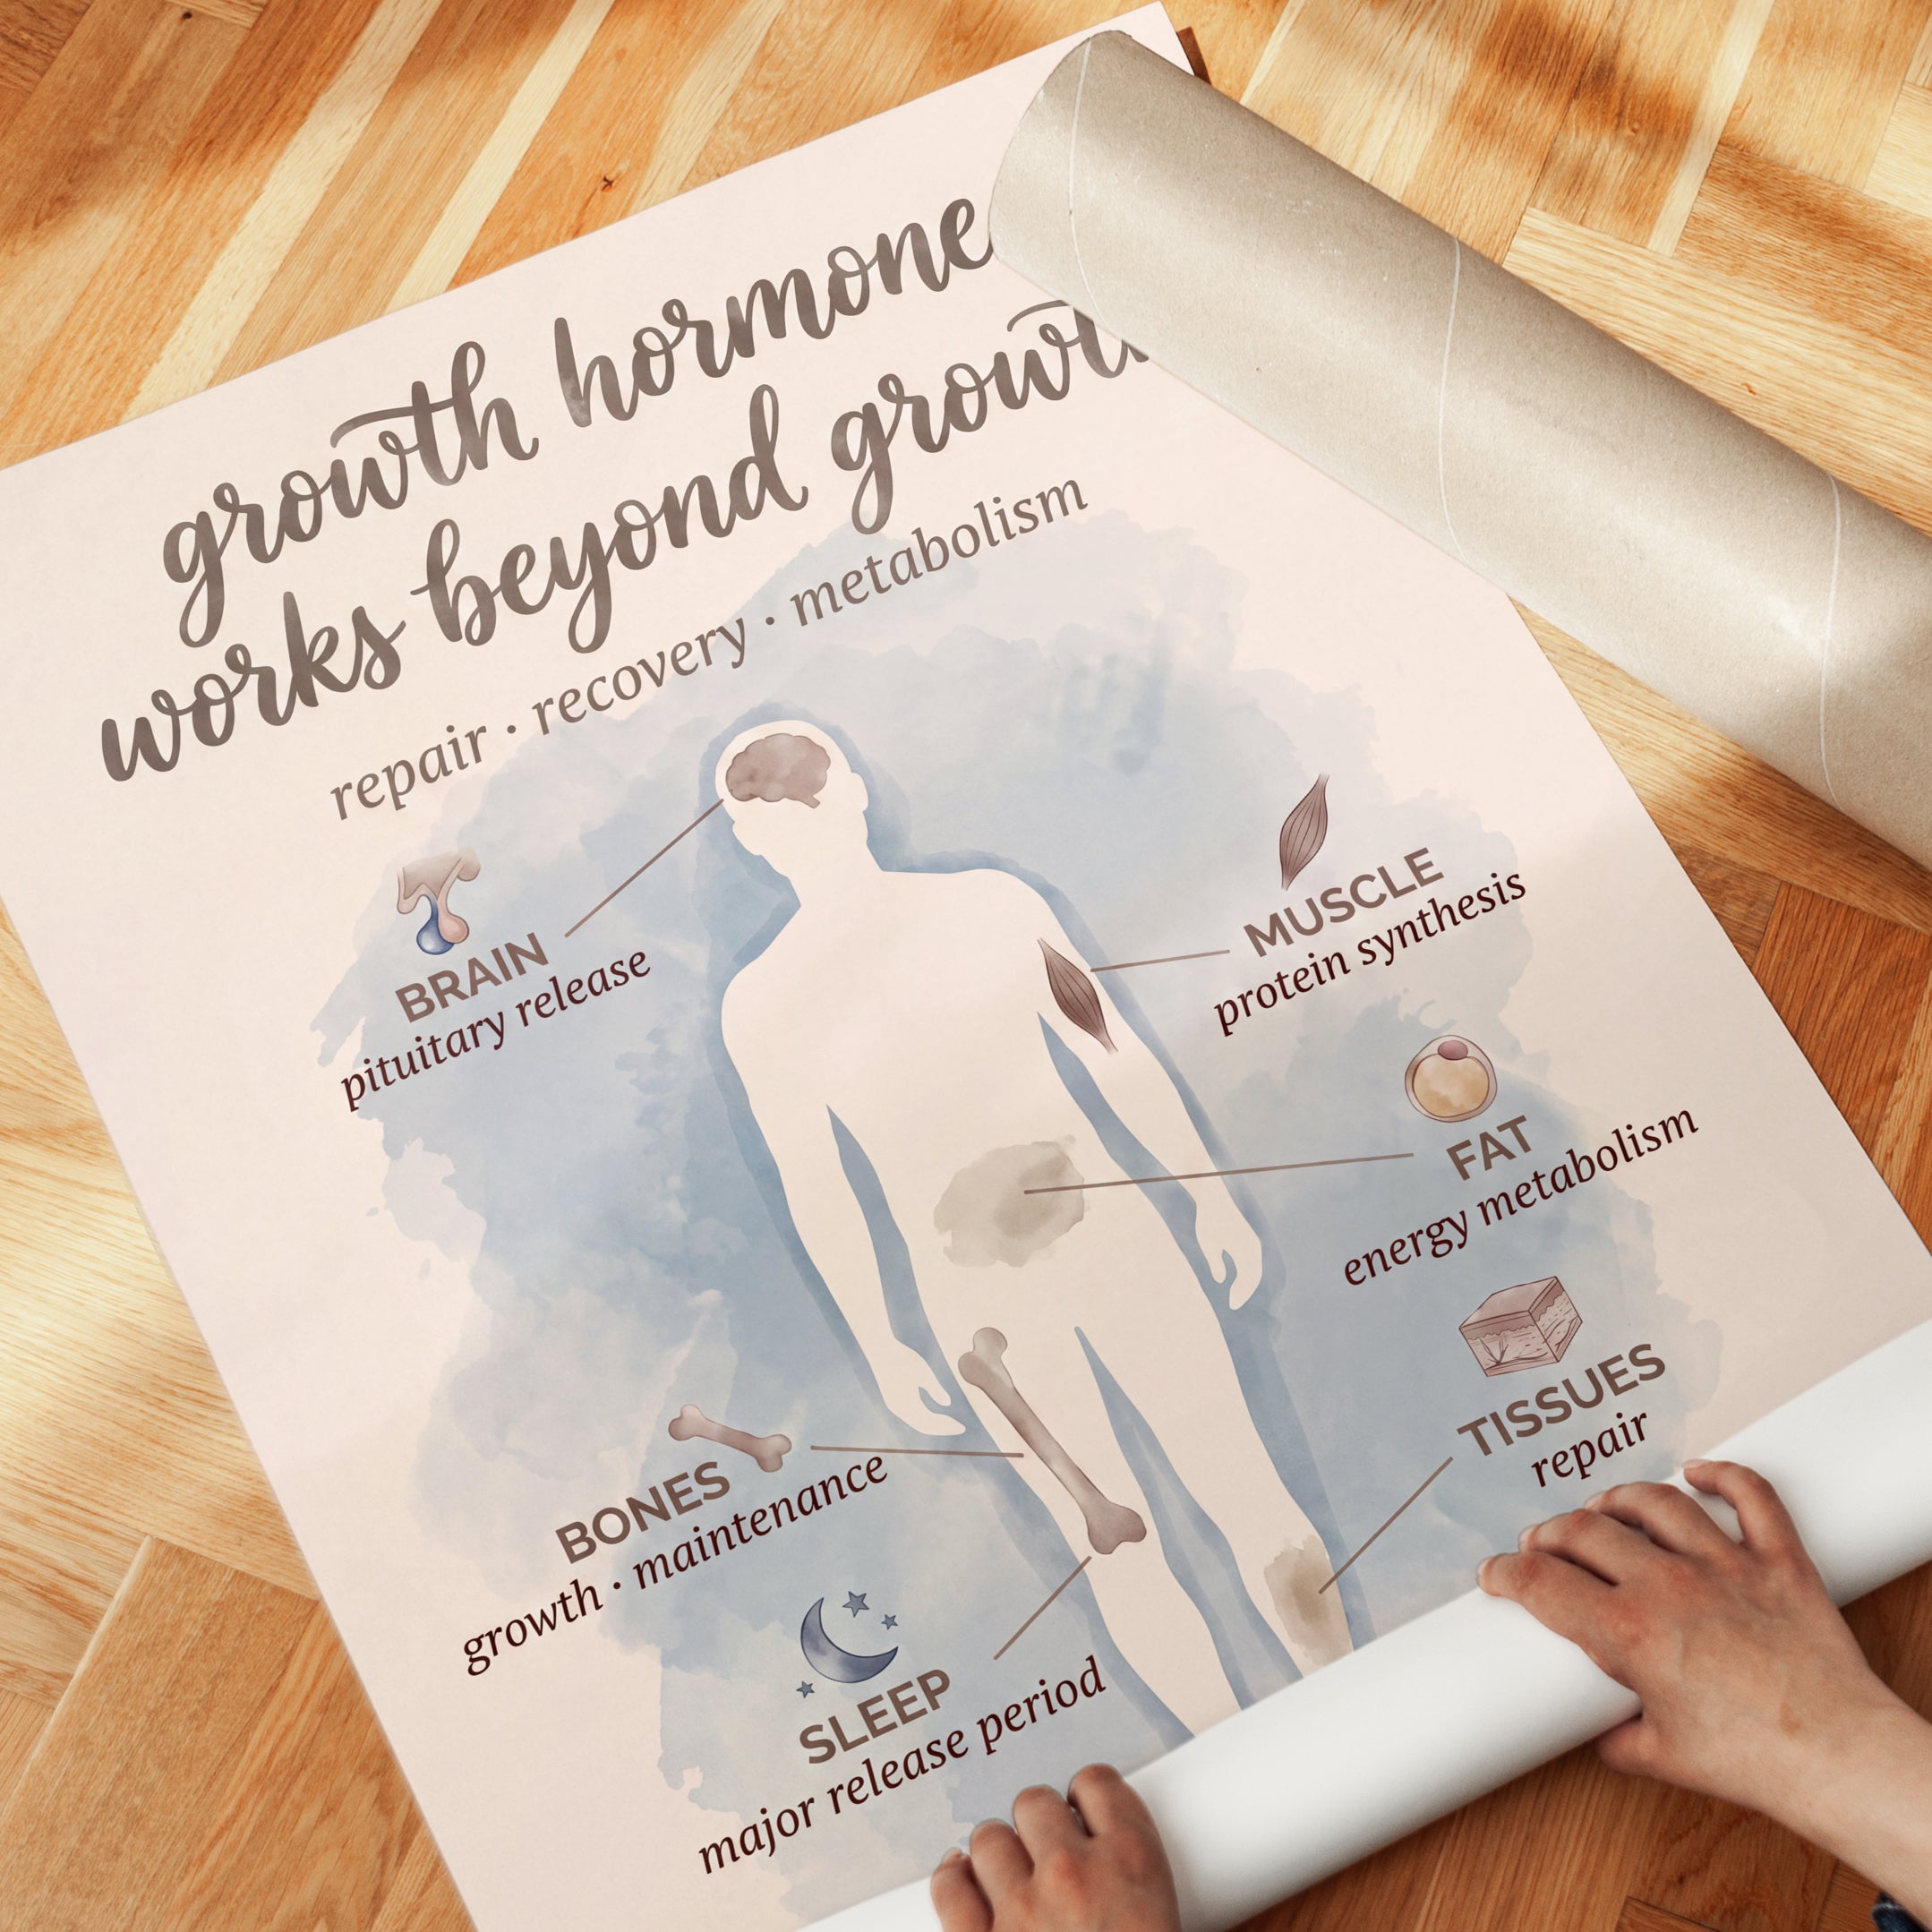 growth hormone
works beyond growth
repair · recovery · metabolism
BRAIN
pituitary release
MUSCLE
protein synthesis
FAT
energy metabolism
TISSUES
repair
BONES
growth · maintenance
SLEEP
major release period